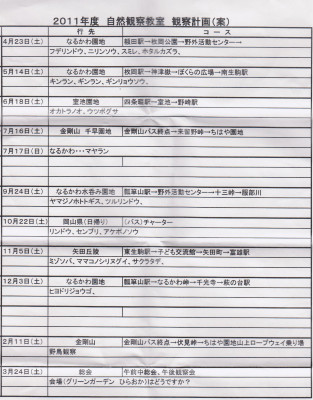 2011年度 自然観察教室 観察計画(案)
行先 コース
4月23日(土) なるかわ園地 額田駅→枚岡公園→野外活動センター→
フデリンドウ、ニリンソウ、スミレ、ホタルカズラ、
5月14日(土) なるかわ園地 枚岡駅→神津嶽→ぼくらの広場→南生駒駅
キンラン、ギンラン、ギンリョウソウ、
6月18日(土) 室池園地 四条畷駅→室池→野崎駅
オカトラノオ、ウツボグサ
7月16日(土) 金剛山 千早園地 金剛山バス終点→来留野峠→ちはや園地
7月17日(日) なるかわ・・・マヤラン
9月24日(土) なるかわ水呑み園地 瓢箪山駅→野外活動センター→十三峠→服部川
ヤマジノホトトギス、ツルリンドウ、
10月22日(土) 岡山県(日帰り) (バス)チャーター
リンドウ、センブリ、アケボノソウ
11月5日(土) 矢田丘陵 東生駒駅→子ども交流館→矢田町→富雄駅
ミゾソバ、ママコノシリヌグイ、サクラタデ、
12月3日(土) なるかわ園地 瓢箪山駅→なるかわ峠→千光寺→萩の台駅
ヒヨドリジョウゴ、
2月11日(土) 金剛山 金剛山バス終点→伏見峠→ちはや園地山上ロープウェイ乗り場
野鳥観察
3月24日(土) 総会 午前中総会、午後観察会
会場(グリーンガーデン ひらおか)はどうですか?